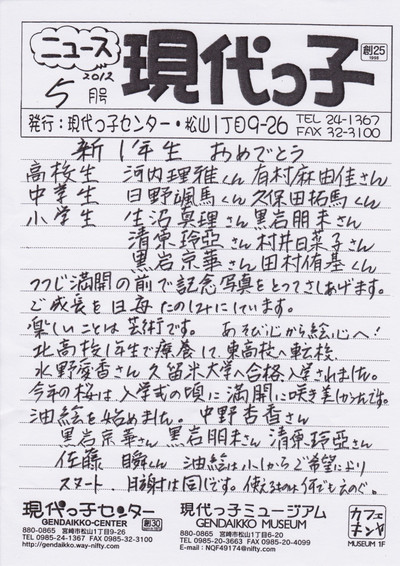 ニュース
2012
5月号
現代っ子
創25
1988
発行:現代っ子センター・松山1丁目9-26
TEL 24-1367
FAX 32-3100
新1年生 おめでとう
高校生 河内理雅くん 有村麻由佳さん
中学生 日野颯馬くん 久保田拓馬くん
小学生 生沼真理さん 黒岩朋未さん
清原玲亞さん 村井日菜子さん
黒岩京華さん 田村侑基くん
つつじ満開の前で記念写真をとってさしあげます。
ご成長を日毎たのしみにしています。
楽しいことは芸術です。 あそび心から絵心へ!
北高校1年生で療養して、東高校へ転校
水野愛香さん 久留米大学へ合格、入学されました。
今年の桜は、入学式の頃に満開に咲き美しかったです。
油絵を始めました。中野杏香さん
黒岩京華さん 黒岩朋未さん 清原玲亞さん
佐藤 瞬くん 油絵は小1からご希望により
スタート、目謝は同じです。使えるものは何でもえのぐ。
現代っ子センター
GENDAIKKO-CENTER
創30
880-0865 宮崎市松山1丁目9-26
TEL 0985-24-1367 FAX 0985-32-3100
http://gendaikko.way-nifty.com/
現代っ子ミュージアム
GENDAIKKO MUSEUM
880-0865 宮崎市松山1丁目
TEL 0985-20-3663 FAX 0985-20-4099
E-mail : NQF49174@nifty.com
カフェ
MUSEUM 1F